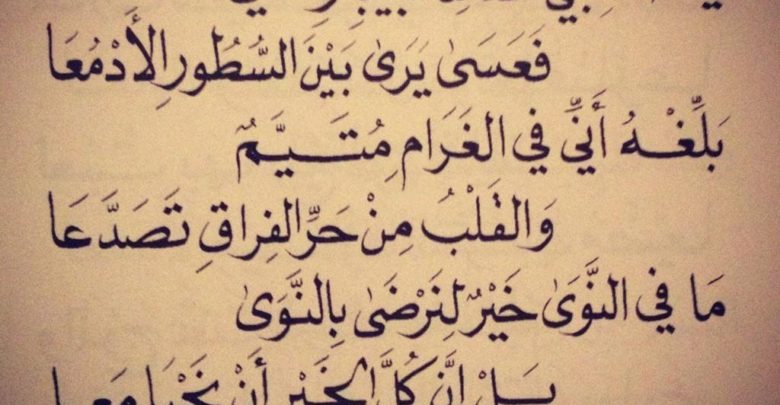 فَعَسَىٰ يَرَىٰ بَيْنَ السُّطُورِ الأَدْمُعَا
بَلِّغْهُ أَنِّي فِي الغَرَامِ مُتَيَّمٌ
وَالقَلْبُ مِنْ حَرِّ الفِرَاقِ تَصَدَّعَا
مَا فِي النَّوَىٰ خَيْرٌ لِنَرْضَىٰ بِالنَّوَىٰ
بَلْ إِنَّ كُلَّ الخَيْرِ أَنْ نَحْيَا مَعَا